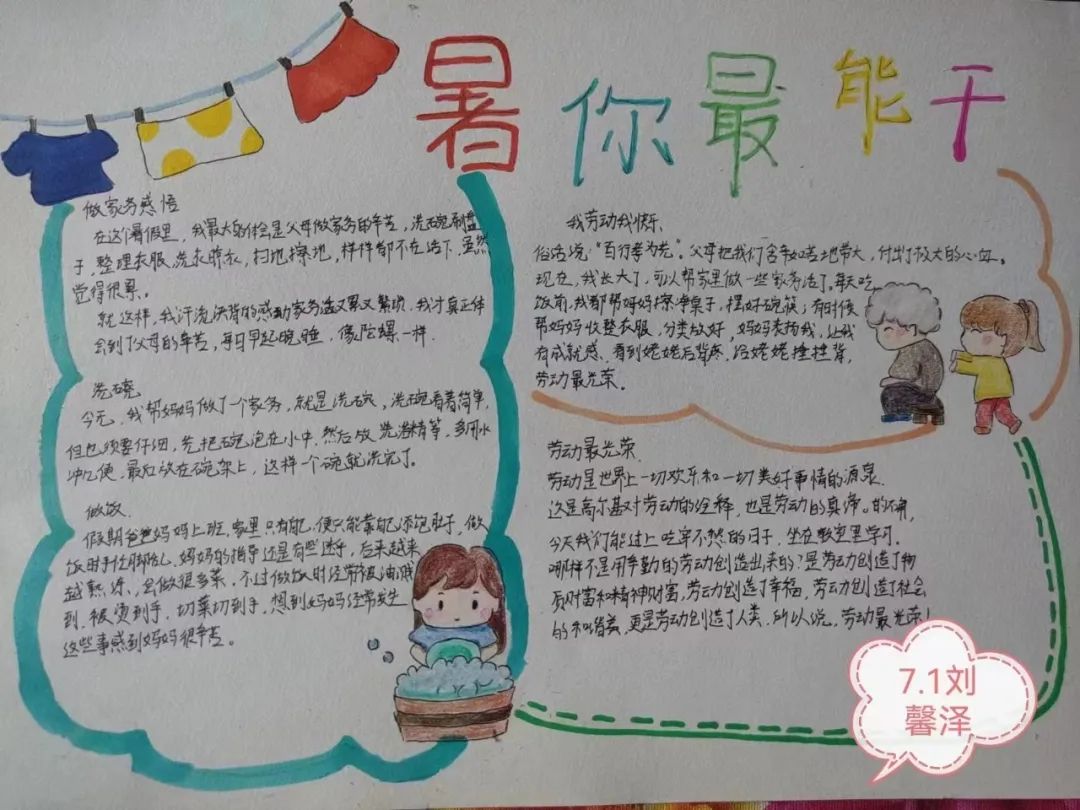 暑你最能干
做家务感悟
在这个暑假里，我最大的体会是父母做家务的辛苦，洗碗刷盘
子，整理衣服，洗衣晾衣，扫地擦地，样样都不在话下，虽然
觉得很累。
就这样，我汗流浃背的感动家务活又累又繁琐，我才真正体
会到了父母的辛苦，每日早起晚睡，像陀螺一样.
洗碗
今天，我帮妈妈做了一个家务，就是洗碗，洗碗看着简单，
但也须要仔细，先把碗泡在水中，然后放洗洁精等，多用水
冲几便，最后放在碗架上，这样一个碗就洗完了。
做饭
假期爸爸妈妈上班，家里只有自己，便只能靠自己添饱肚子，做
饭时手忙脚乱，妈妈的指导还是有些迷乎，后来越来
越熟练，会做很多菜，不过做饭时经常被油溅
到，被烫到手，切菜切到手，想到妈妈经常发生
这些事感到妈妈很辛苦。
我劳动我快乐
俗话说：“百行孝为先”。父母把我们含辛如苦地带大，付出了极大的心血。
现在，我长大了，可以帮家里做一些家务活了，每天吃
饭前，我都帮妈妈擦净桌子，摆好碗筷；有时候
帮妈妈收整衣服，分类放好，妈妈表扬我，让我
有成就感，看到姥姥后背疼，给姥姥捶捶背，
劳动最光荣。
劳动最光荣
劳动是世界上一切欢乐和一切美好事情的源泉
这是高尔基对劳动的诠释，也是劳动的真谛。的确，
今天我们能过上吃穿不愁的日子，坐在教室里学习，
哪样不是用辛勤的劳动创造出来的？是劳动创造了物
质财富和精神财富，劳动创造了幸福，劳动创造了社会
的和谐美，更是劳动创造了人类，所以说，劳动最光荣！
7.1刘
馨泽